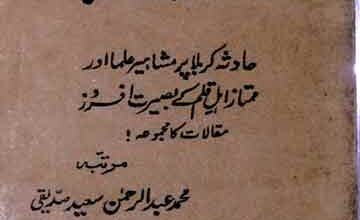 حادثہ کربلا پر مشاہیر علما اور
ممتاز اہل قلم کے بصیرت افروز
مقالات کا مجموعہ!
مرتبہ
محمد عبد الرحمٰن سعید صدیقی